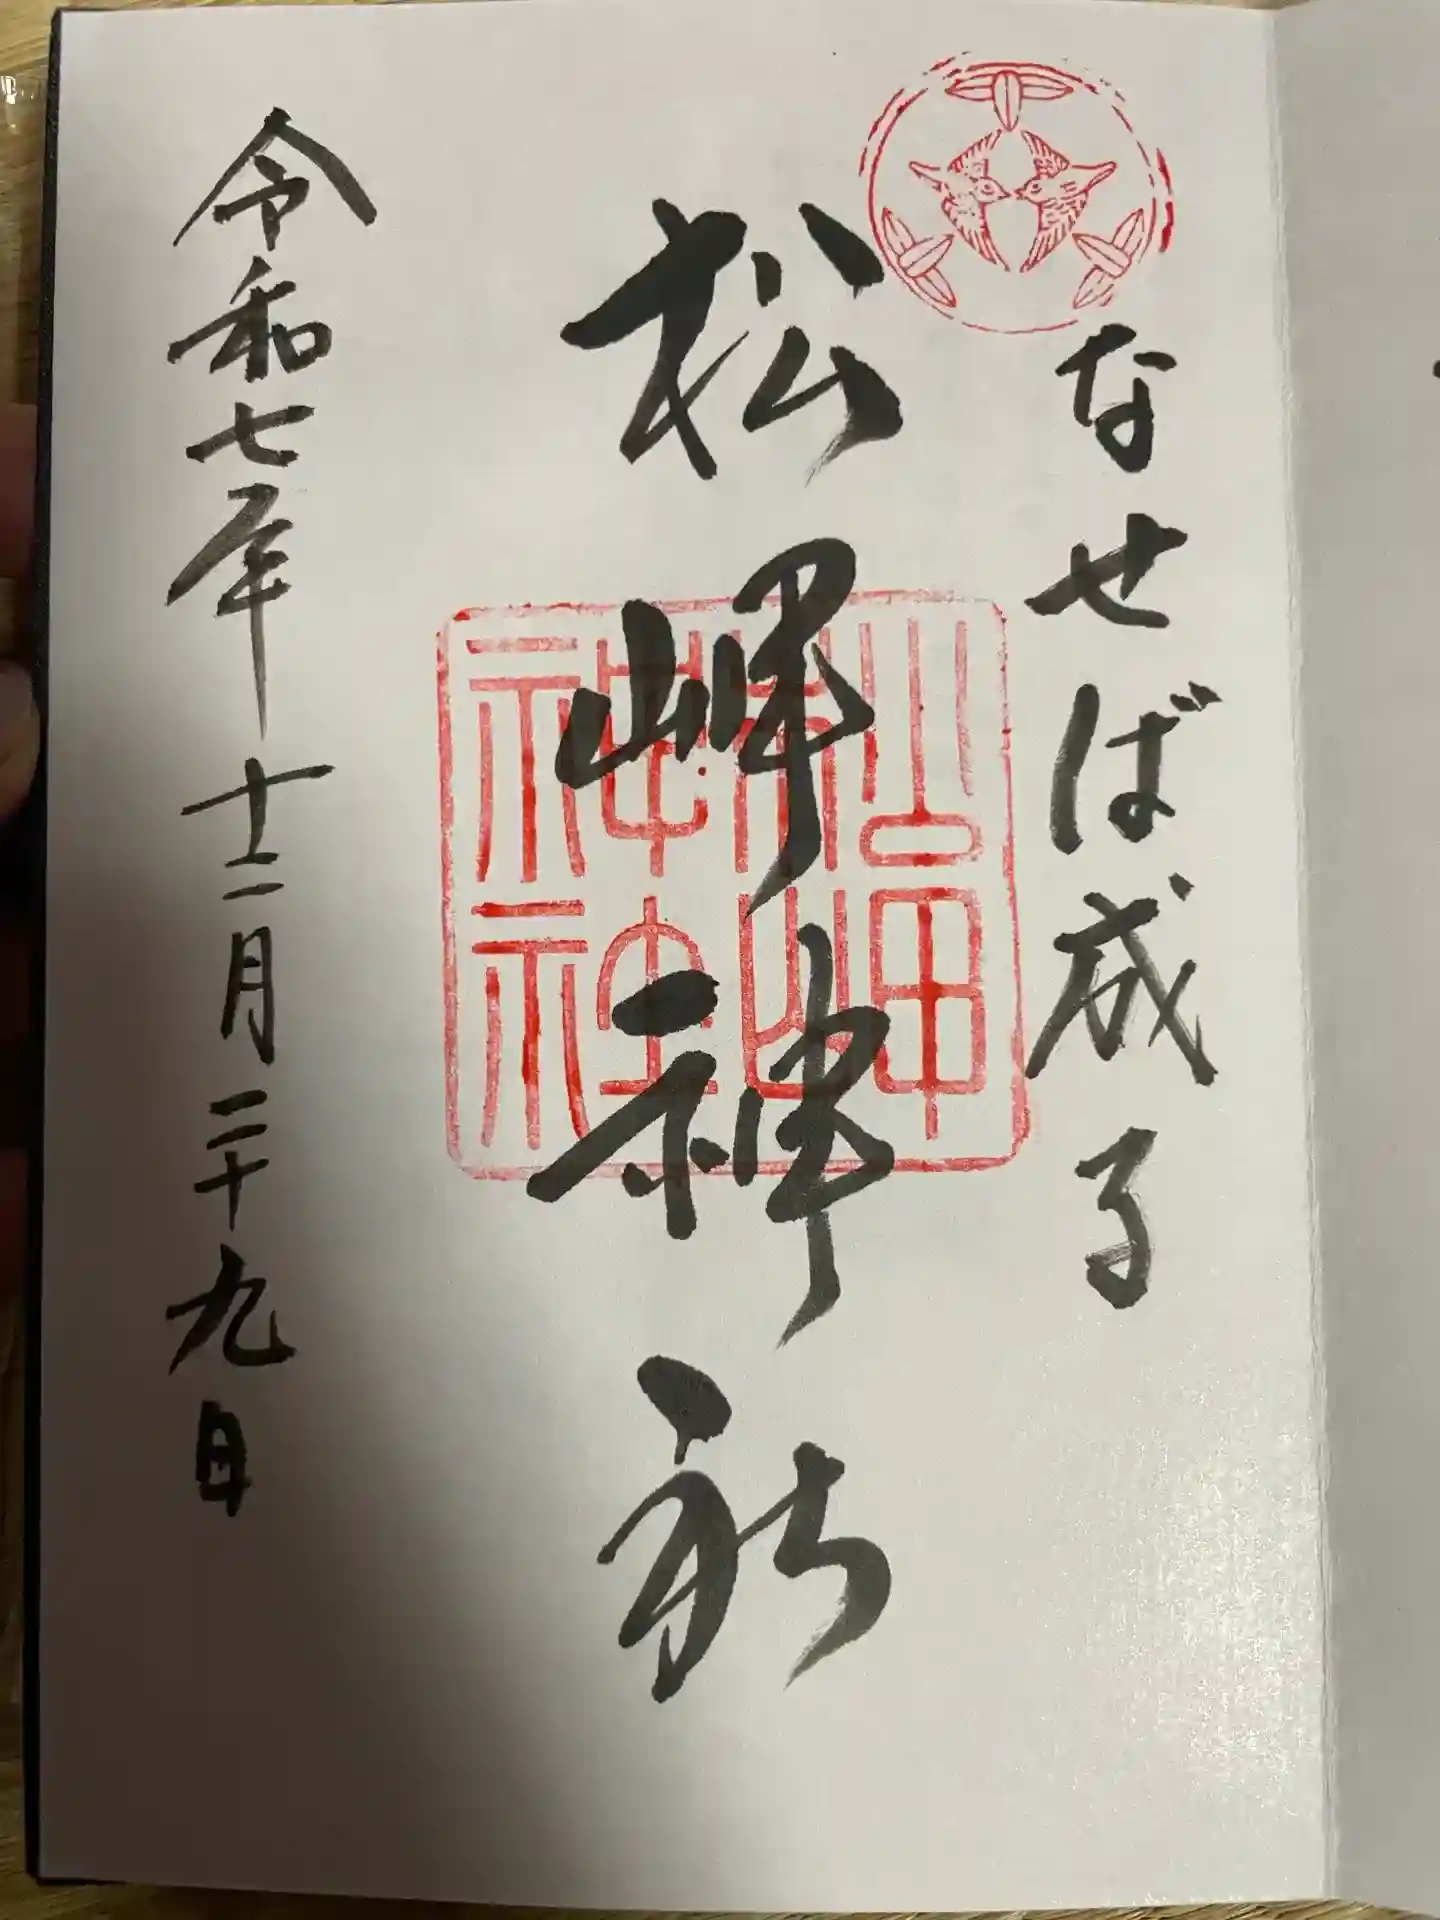 なせば成る
松岬神社
松岬神社
令和七年十二月二十九日